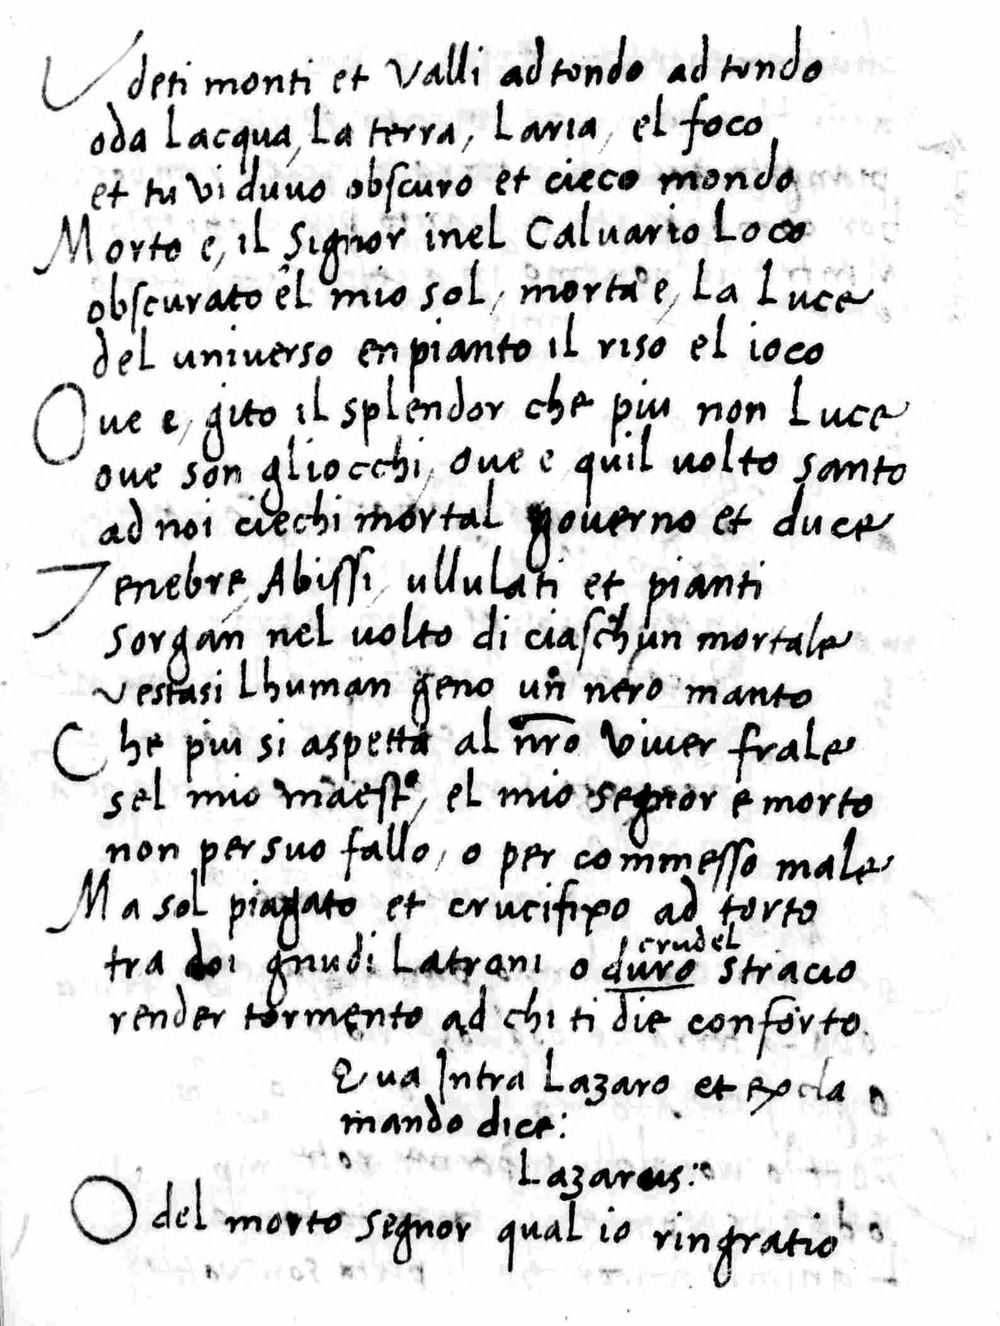 Udeti monti et valli ad tondo ad tondo
oda lacqua, la terra, laria, el foco
et tu vi duuo obscuro et cieco mondo
Morto e, il signor inel Caluario loco
obscurato êl mio sol, morta e, la luce
del uniuerso en pianto il riso el ioco
Oue e, gito il splendor che piu non luce
oue son gliocchi, oue e quil uolto santo
ad noi ciechi mortal gouerno et duce
Tenebre, Abissi, ullulati et pianti
sorgan nel uolto di ciaschun mortale
vestasi lhuman geno un nero manto
Che piu si aspetta al nro viuer frale
sel mio maest°, el mio segnor e morto
non per suo fallo, o per commesso male
Ma sol piagato et crucifixo ad torto
crudel
tra doi gnudi latroni o duro stracio
render tormento ad chi ti die conforto.
Qua Intra Lazaro et excla
mando dice:
Lazarus:
O del morto segnor qual io ringratio